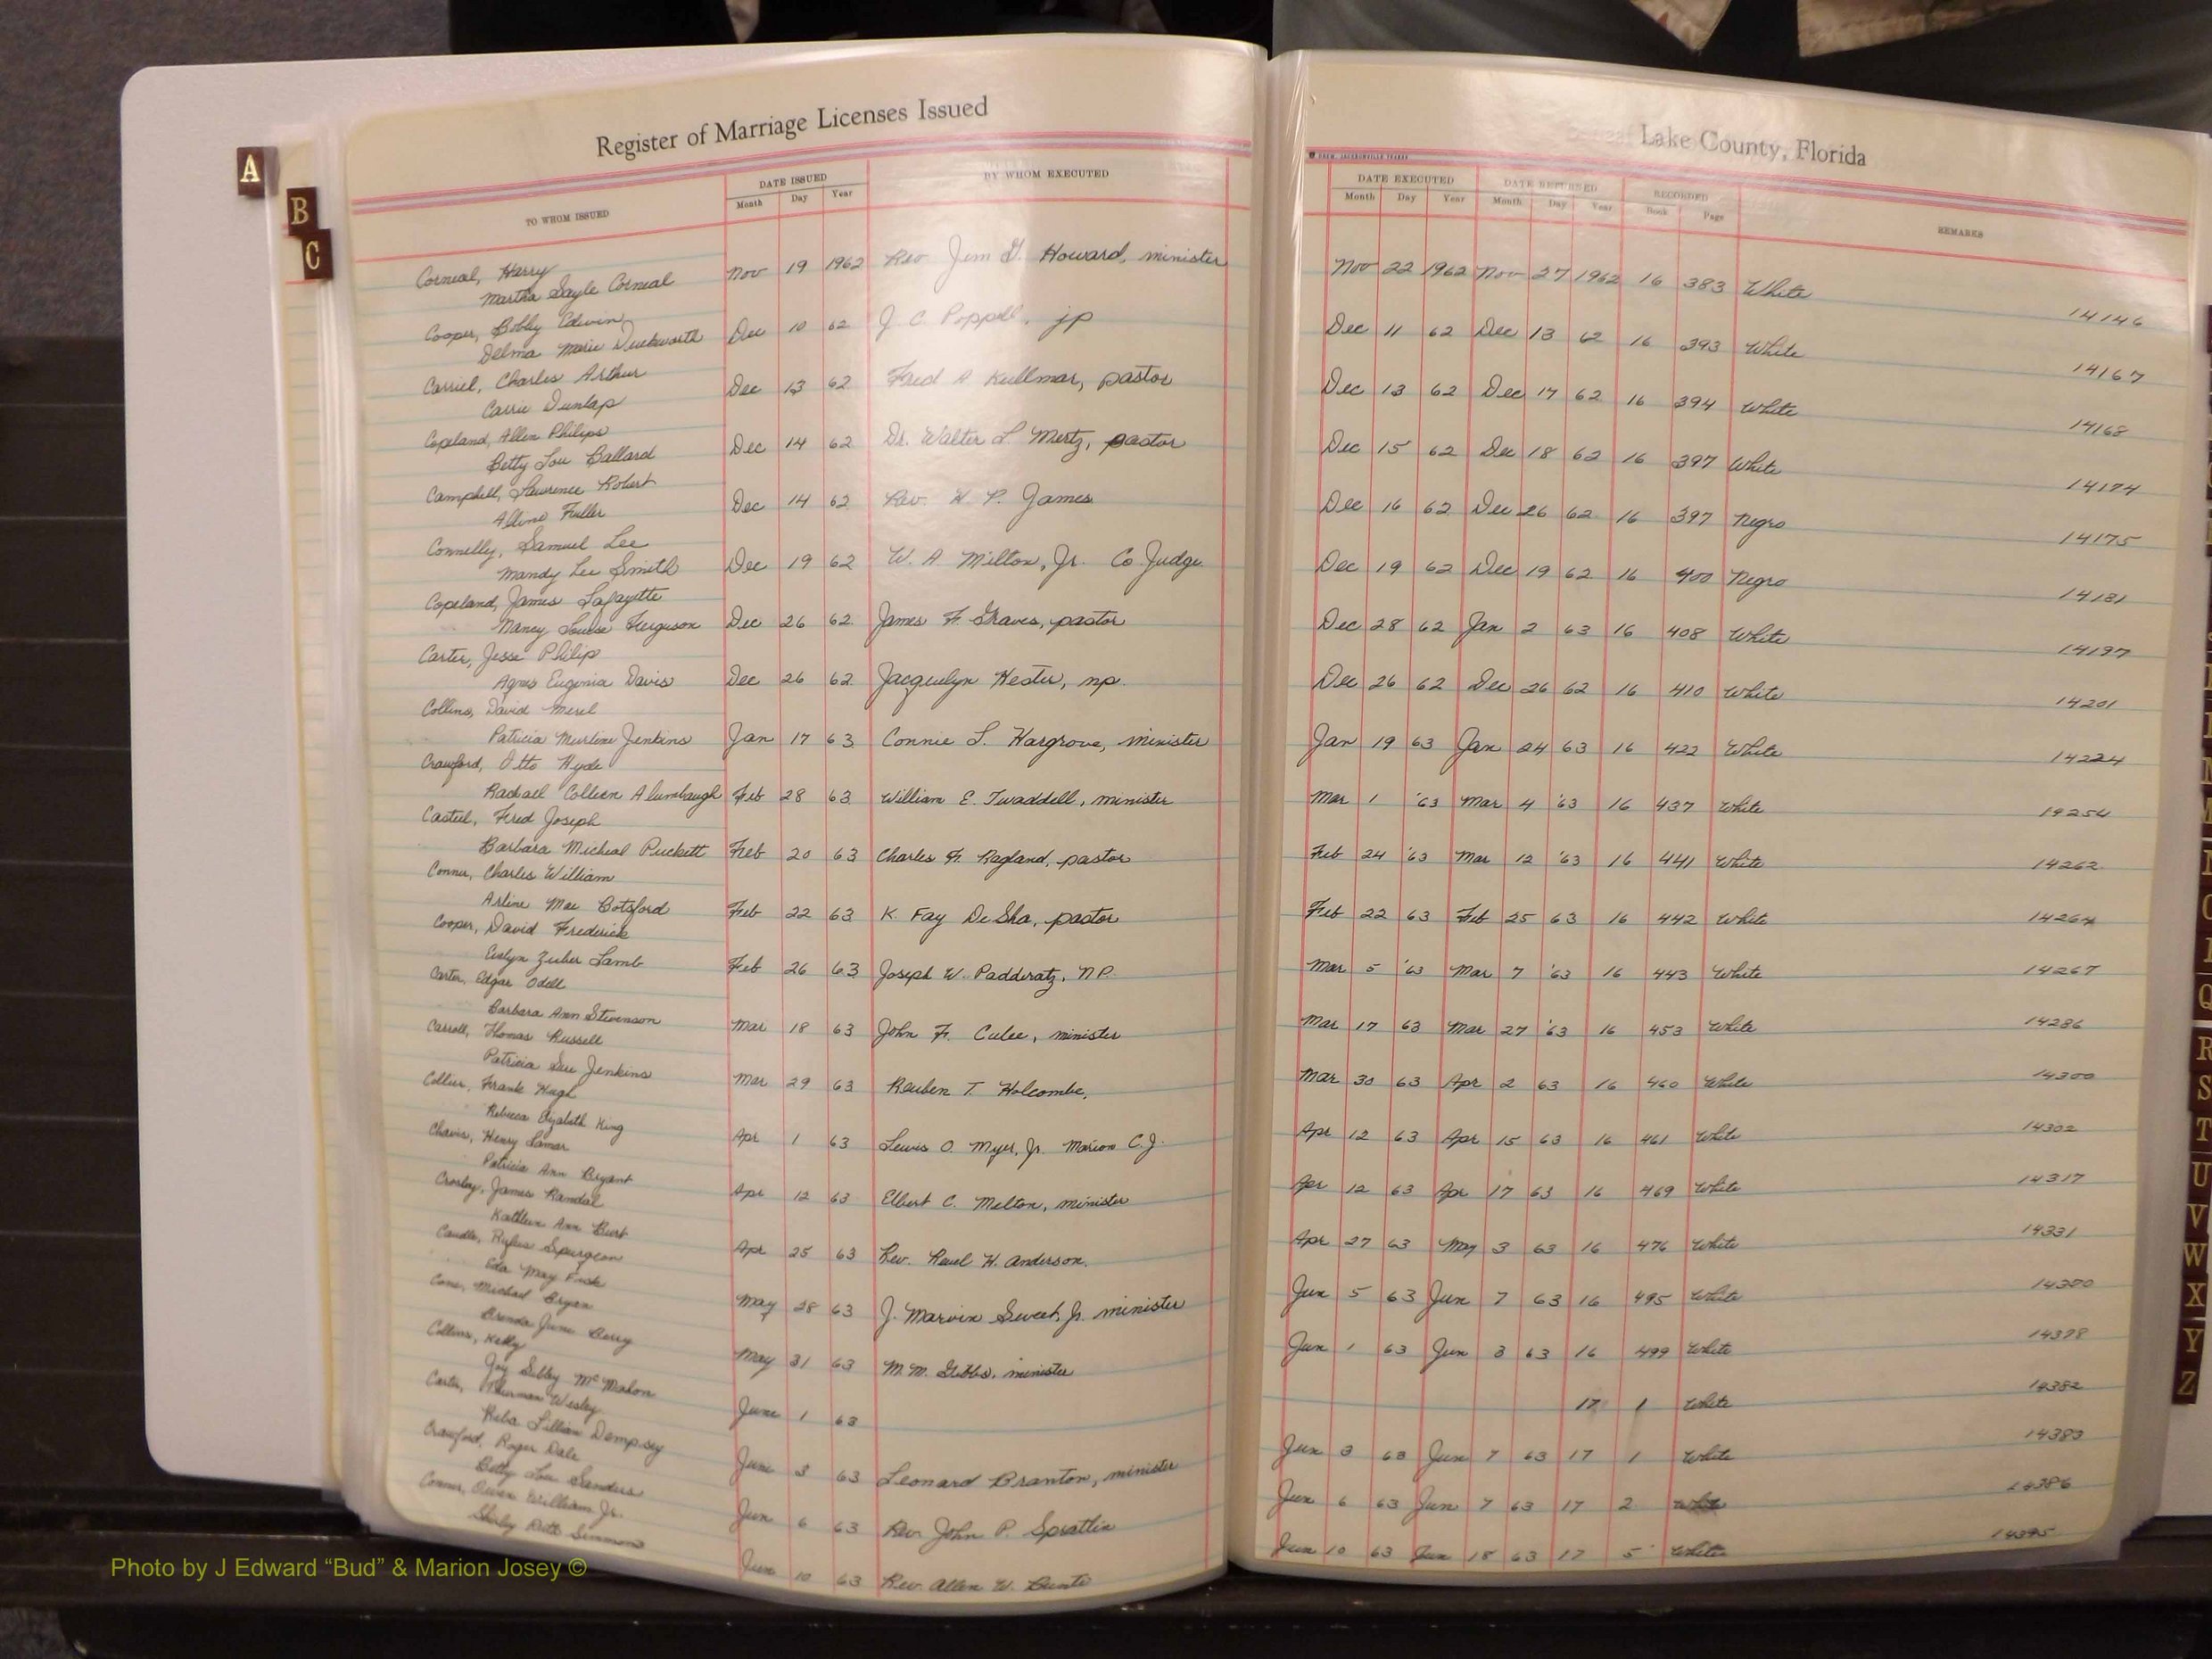 Register of Marriage Licenses Issued
Lake County, Florida
A
B
C
TO WHOM ISSUED
DATE ISSUED
Month Day Year
BY WHOM EXECUTED
DATE EXECUTED
Month Day Year
DATE RETURNED
Month Day Year
RECORDED
Book Page
REMARKS
Corneal, Harry
Martha Sayle Corneal Nov 19 1962 Rev Jim G. Howard, minister Nov 22 1962 Nov 27 1962 16 383 White 14146
Cooper, Bobby Edwin
Delma Marie Duckworth Dec 10 62 J. C. Poppell, jp Dec 11 62 Dec 13 62 16 393 White 14167
Carriel, Charles Arthur
Carrie Dunlap Dec 13 62 Fred A Kullmar, pastor Dec 13 62 Dec 17 62 16 394 White 14168
Copeland, Allen Philips
Betty Lou Ballard Dec 14 62 Dr. Walter L. Mertz, pastor Dec 15 62 Dec 18 62 16 397 White 14174
Campbell, Lawrence Robert
Alline Fuller Dec 14 62 Rev. H. P. James Dec 16 62 Dec 26 62 16 397 Negro 14175
Connelly, Samuel Lee
Mandy Lee Smith Dec 19 62 W. A Milton, Jr. Co Judge Dec 19 62 Dec 19 62 16 400 Negro 14181
Copeland, James Lafayette
Nancy Louise Ferguson Dec 26 62 James F. Graves, pastor Dec 28 62 Jan 2 63 16 408 White 14197
Carter, Jesse Philip
Agnes Eugenia Davis Dec 26 62 Jacquelyn Kester, np. Dec 26 62 Dec 26 62 16 410 White 14201
Collins, David Merel
Patricia Murline Jenkins Jan 17 63 Connie L. Hargrove, minister Jan 19 63 Jan 24 63 16 422 White 14224
Crawford, Otto Hyde
Rachael Colleen Alumbaugh Feb 28 63 William E. Twaddell, minister Mar 1 '63 Mar 4 '63 16 437 White 14254
Casteel, Fred Joseph
Barbara Micheal Puckett Feb 20 63 Charles F. Ragland, pastor Feb 24 '63 Mar 12 '63 16 441 White 14262
Conner, Charles William
Arline Mae Botsford Feb 22 63 K. Fay DeSha, pastor Feb 22 63 Feb 25 63 16 442 White 14264
Cooper, David Frederick
Evelyn Zuber Lamb Feb 26 63 Joseph W. Padderatz, N.P. Mar 5 '63 Mar 7 '63 16 443 White 14267
Carter, Edgar Odell
Barbara Ann Stevenson Mar 18 63 John F. Culee, minister Mar 17 63 Mar 27 '63 16 453 White 14286
Carroll, Thomas Russell
Patricia Sue Jenkins Mar 29 63 Reuben T. Holcombe, Mar 30 63 Apr 2 63 16 460 White 14300
Collier, Frank Hugh
Rebecca Elizabeth King Apr 1 63 Lewis O. Myer, Jr. Marion C.J. Apr 12 63 Apr 15 63 16 461 White 14302
Chavis, Henry Lamar
Patricia Ann Bryant Apr 12 63 Elbert C. Melton, minister Apr 12 63 Apr 17 63 16 469 White 14317
Crosby, James Randal
Kathleen Ann Burt Apr 25 63 Rev. Reuel H. Anderson. Apr 27 63 May 3 63 16 476 White 14331
Caudle, Rufus Spurgeon
Eda May Fisk May 28 63 J. Marvin Sweat, Jr. minister Jun 5 63 Jun 7 63 16 495 White
Cone, Michael Bryan
Brenda June Berry May 31 63 M. M. Gibbs, minister Jun 1 63 Jun 3 63 16 499 White 14378
Collins, Kelly
Joy Sibley McMahon June 1 63 17 1 White 14382
Carter, Thurman Wesley
Reba Lillian Dempsey June 3 63 Leonard Branton, minister Jun 3 63 Jun 7 63 17 1 White 14383
Crawford, Roger Dale
Betty Lou Sanders Jun 6 63 Rev. John P. Spratlin Jun 6 63 Jun 7 63 17 2 White 14386
Conner, Owen William Jr.
Shirley Ruth Simmons Jun 10 63 Rev. Allen W. Jun 10 63 Jun 18 63 17 5 White 14395
Q
R
S
T
U
V
W
X
Y
Z
Photo by J Edward “Bud” & Marion Josey ©